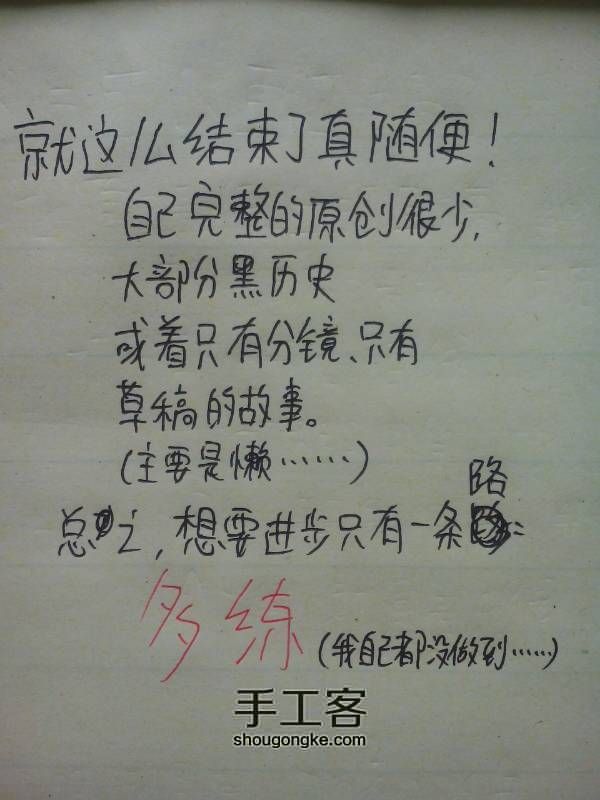 就这么结束了真随便！
自己完整的原创很少，
大部分黑历史
或着只有分镜、只有
草稿的故事。
（主要是懒……）
总之，想要进步只有一条路：
多练（我自己都没做到……）
手工客
shougongke.com